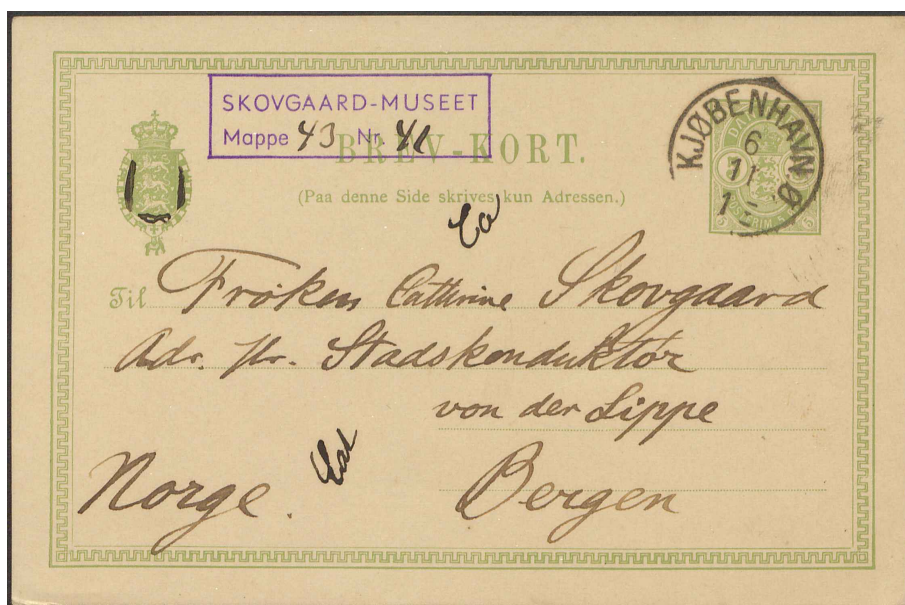 SKOVGAARD-MUSEET
Mappe 43 Nr. 41
BREV-KORT.
(Paa denne Side skrives kun Adressen.)
KJØBENHAVN Ø
6
11
Til Frøken Cathrine Skovgaard
Adr. Hr. Stadskonduktör
von der Lippe
Norge. Bergen